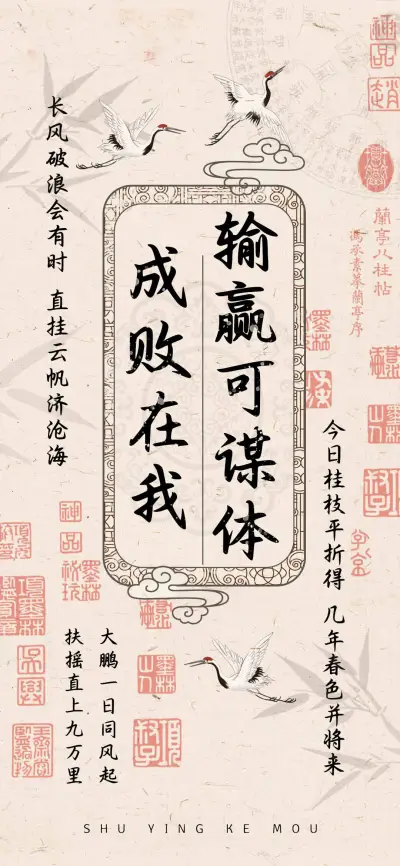 输赢可谋体
成败在我
长风破浪会有时 直挂云帆济沧海
今日桂枝平折得 几年春色并将来
大鹏一日同风起
扶摇直上九万里
蘭亭八柱帖
馮承素摹蘭亭序
神品
神品
墨林
SHU YING KE MOU